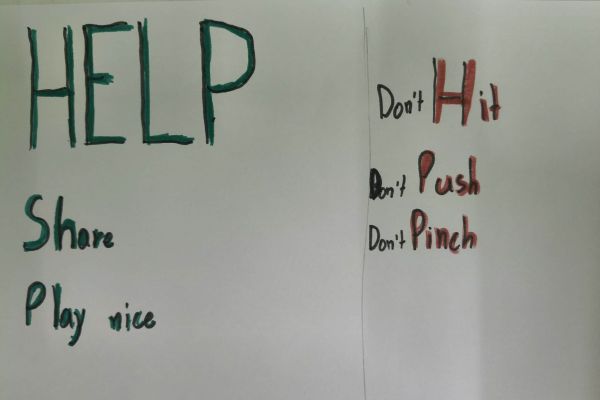 HELP
Share
Play nice
Don't Hit
Don't Push
Don't Pinch